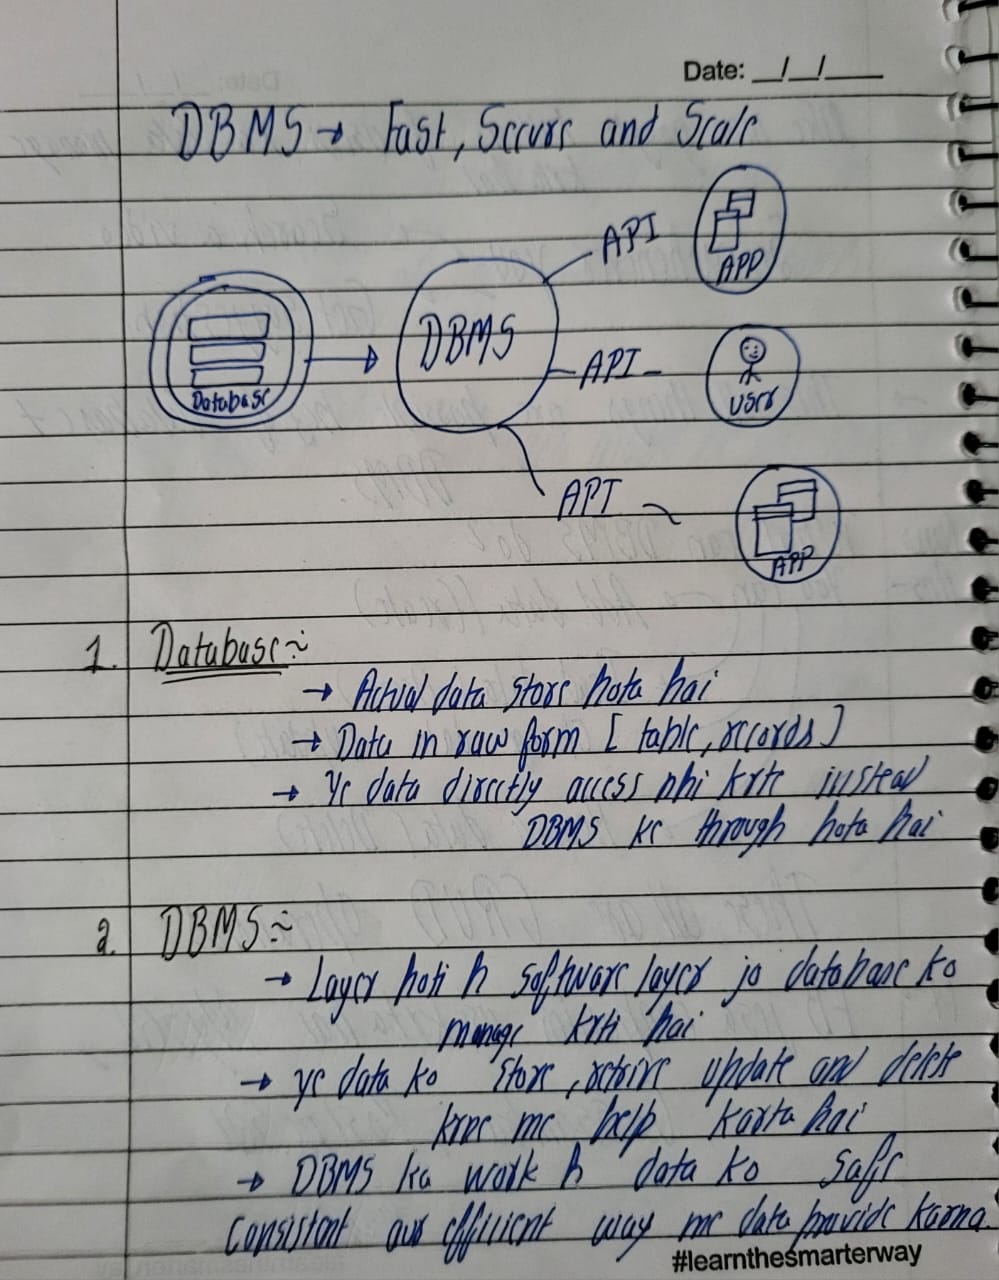 Date: __/__/____
DBMS → Fast, Secure and Scale
API
APP
DBMS
Database
API
User
API
APP
1. Database :~
→ Actual data store hota hai
→ Data in raw form [ table, records ]
→ Ye data directly access nhi krte instead
DBMS ke through hota hai
2. DBMS :~
→ Layer hoti h software layer jo database ko
manage krti hai
→ ye data ko store, retrive update and delete
krne me help karta hai
→ DBMS ka work h data ko safe
consistent aur efficient way me data provide karna.
#learnthesmarterway